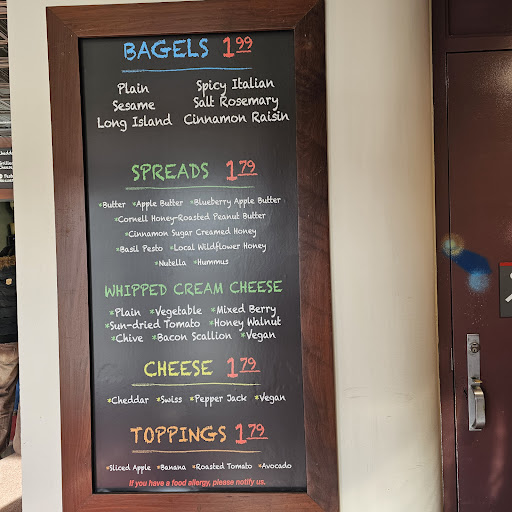 BAGELS 1.99
Plain Spicy Italian
Sesame Salt Rosemary
Long Island Cinnamon Raisin
SPREADS 1.79
*Butter *Apple Butter *Blueberry Apple Butter
*Cornell Honey-Roasted Peanut Butter
*Cinnamon Sugar Creamed Honey
*Basil Pesto *Local Wildflower Honey
*Nutella *Hummus
WHIPPED CREAM CHEESE
*Plain *Vegetable *Mixed Berry
*Sun-dried Tomato *Honey Walnut
*Chive *Bacon Scallion *Vegan
CHEESE 1.79
*Cheddar *Swiss *Pepper Jack *Vegan
TOPPINGS 1.79
*Sliced Apple *Banana *Roasted Tomato *Avocado
If you have a food allergy, please notify us.